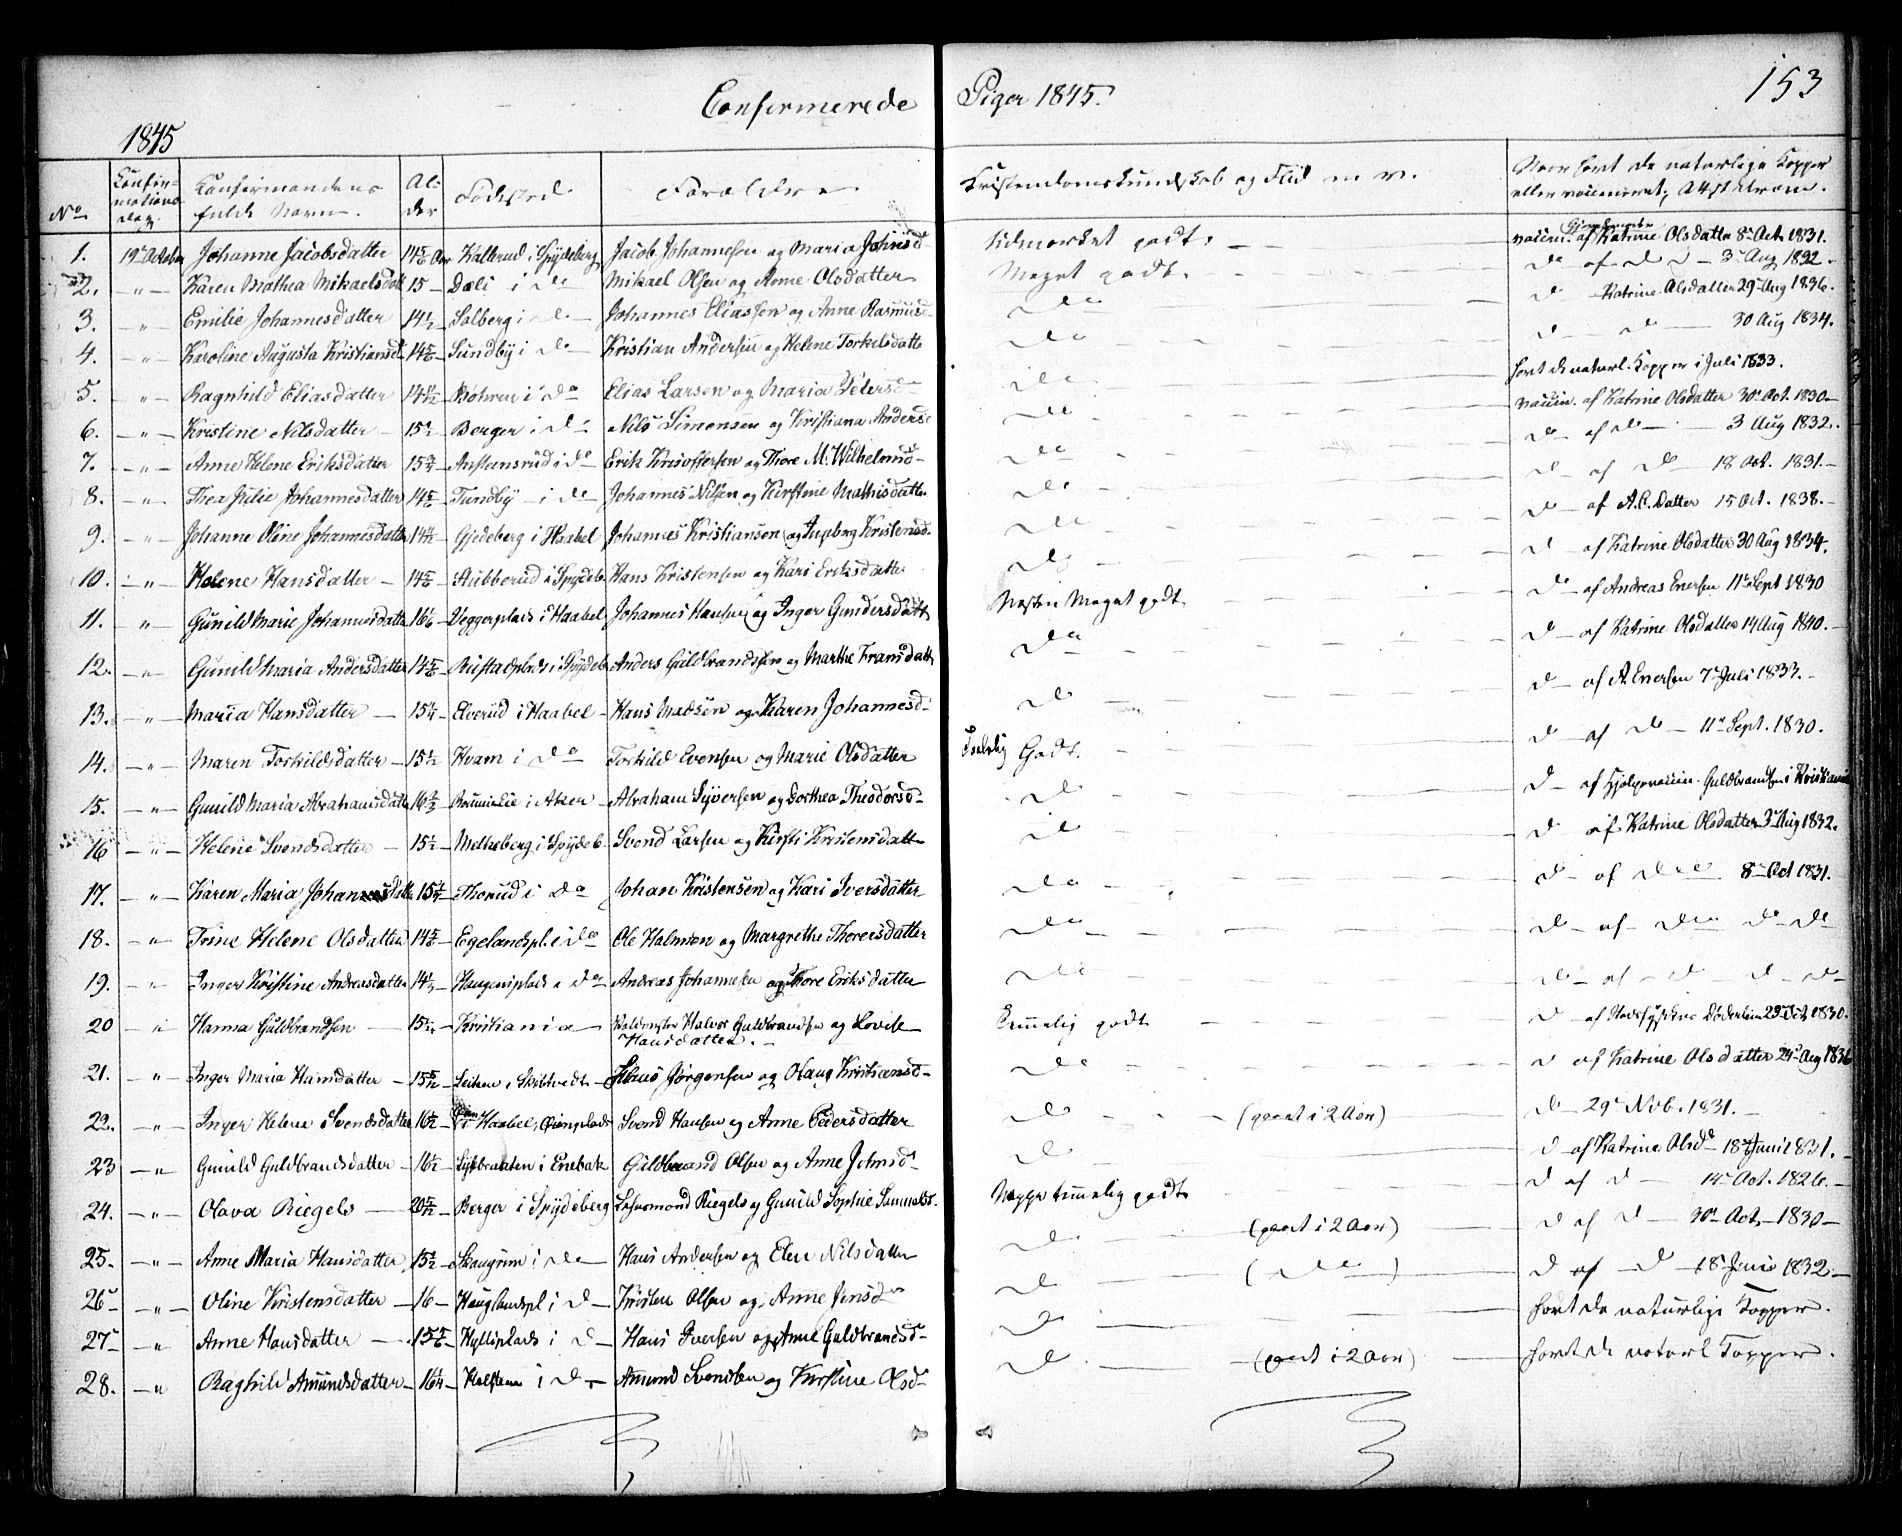 Confirmerede Piger 1845.
153
1845
No
Confirmations dag.
Confirmandens fulde Navn.
Alder
Fødested
Forældre
Kristendomskundskab og Flid m. v.
Naar havt de naturlige Kopper eller vaccineret,
1. 19de October Johanne Jacobsdatter 14 5/6 Aar Kallerud i Spydeberg Jacob Johannesen og Maria Johnsd- Udmærket godt. vaccin. af Katrine Olsdatter 8de Oct. 1831.
2. -"- Karen Mathea Mikaelsdatt 15 - Dæli i do Mikael Olsen og Anne Olsdatter Meget godt. do af do 3 Aug 1832
3. -"- Emilie Johannesdatter 14 1/2 Solberg i do Johannes Eliassen og Anne Rasmusd- do do Katrine Olsdatter 29 Aug 1836.
4. -"- Karoline Augusta Kristiansd 14 5/6 Sundby i do Kristian Andersen og Helene Torkelsdatter do do do 30 Aug 1834.
5. -"- Ragnhild Eliasdatter 14 11/12 i do Elias Larsen og Maria Petersd- do havt de naturl. Kopper i Juli 1833.
6. -"- Kristine Nilsdatter Berger i do Nils Simensen og Kristiana Anders do vaccin. af Katrine Olsdatter 30 Oct. 1830
7. -"- Anne Helene Eriksdatter 15 3/4 i do Erik Kristoffersen og Thore M. Wilhelmsd- do do af do 3 Aug 1832.
8. -"- Thea Julie Johannesdatter 14 5/6 Tundby i do Johannes Nilsen og Kirstine Mathisdatter do do af do 18 Oct. 1831.
9. -"- Johanne Oline Johannesdatter 14 11/12 Gjedeberg i Haabel Johannes Kristiansen og Ingeborg Kristensd. do do af A. C. Datter 15 Oct. 1838.
10. -"- Helene Hansdatter 14 5/6 Stubberud i Spydeb Hans Kristensen og Kari Eriksdatter do do af Katrine Olsdatter 30 Aug 1834.
11. " Gunild Marie Johannesdatter 16 1/6 Veggerplads i Haabel Johannes Hansen og Inger Gundersdatt Næsten Meget godt do af Andreas Enersen 11te Sept 1830
12. -"- Gunild Maria Andersdatter 14 5/6 i Spydeb Anders Guldbrandsen og Marthe Fransdatt do do af Katrine Olsdatter 14 Aug 1840.
13. -"- Maria Hansdatter 15 1/4 Elverud i Haabel Hans Madsen og Karen Johannesd- do do af A. Enersen 7de Juli 1833.
14. -"- Maren Torkildsdatter 15 1/2 Hvam i do Torkild Evensen og Marie Olsdatter Godt. do af do 11te Sept. 1830.
15. -"- Gunild Maria Abrahamsdatter i Aker Abraham Syversen og Dorthea Theodorsd- do do af Hjelpevaccin. Guldbrandsen i Kristiania
16 -"- Helene Svendsdatter 15 1/2 Melleberg i Spydeb Svend Larsen og Kirsti Kristensdatter do do af Katrine Olsdatter 3 Aug 1832.
17. -"- Karen Maria 15 1/4 Thorud i do Johan Kristensen og Kari Iversdatter do do af do 8de Oct 1831.
18. -"- Trine Helene Olsdatter 14 5/6 Egelandspl. i do Ole Halmsen og Margrethe Thorersdatter do do af do do do
19. -"- Inger Kristine Andreasdatter 14 1/2 Haugensplads do Andreas Johannesen og Thore Eriksdatter do do af do do do
20 " Hanna Guldbrandsen Kristiania Halvor Guldbrandsen og Lovise Hansdatter. Temmelig godt do af Døderlein 29 Oct 1830.
21. -"- Inger Maria Hansdatter 15 5/12 i Skibtvedt Jørgensen og Olaug Kristiansd- do do af Katrine Olsdatter 24 Aug 1836
22. -"- Inger Helene Svendsdatter 16 1/2 i Haabel, Svend Hansen og Anne Pedersdatter do (gaaet i 2 Aar) do 29 Nob. 1831.
23 -"- Gunild Guldbrandsdatter 16 1/2 i Enebak Guldbrand Olsen og Anne Johnsd- do do af Katrine Olsd 18 Juni 1831.
24. -"- Olava Riegels 20 5/12 Berger i Spydeberg Riegels og Gunild Sophie Samuelsd. Neppe temmelig godt do af do 14 Oct. 1826
25. -"- Anne Maria Hansdatter 15 1/2 Skaugrim i do Hans Andersen og Elen Nilsdatter do (gaaet i 2 Aar) do af do 30 Oct. 1830
26 -"- Oline Kristensdatter 16 Hauglandspl i do Kristen Olsen og Anne Jensd do (do) do af do 18 Juni 1832
27 -"- Anne Hansdatter 15 5/6 Hylliplads i do Hans Iversen og Anne Guldbrandsd- do havt de naturlige Kopper.
28. -"- Raghild Amundsdatter 16 1/4 i do Amund Svendsen og Kirstine Olsd do (gaaet i 2 Aar) havt de naturl Kopper.